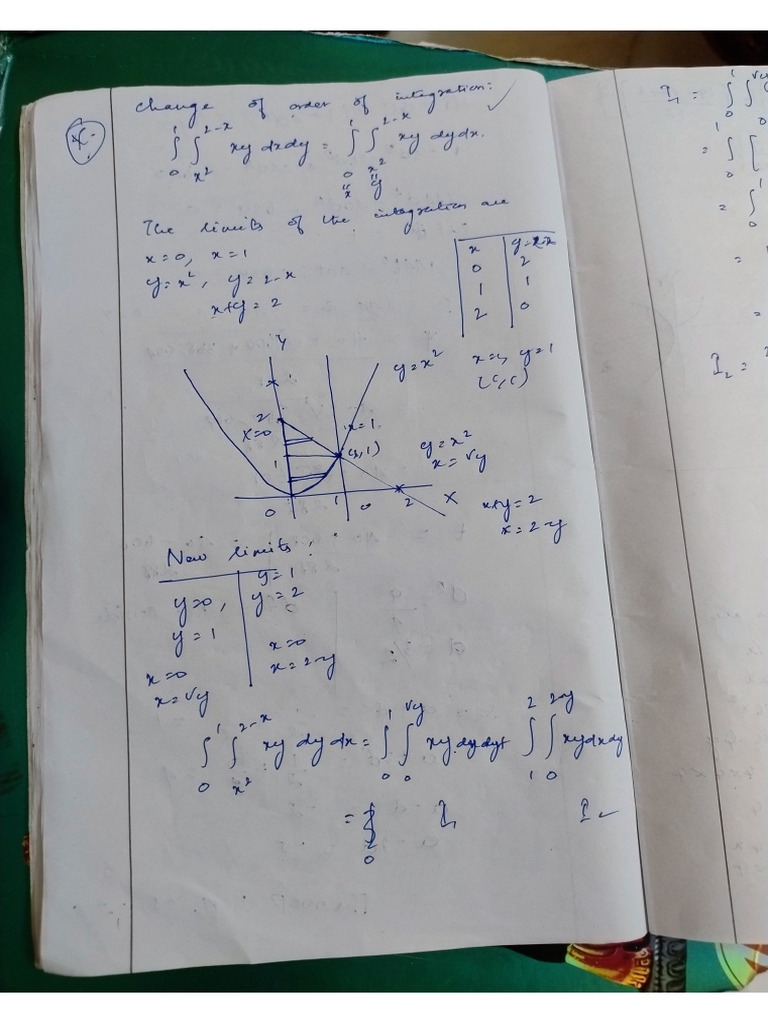 change of order of integration:
∫₀¹ ∫_{x²}^{2-x} xy dxdy = ∫₀¹ ∫_{x²}^{2-x} xy dydx.
" "
x y
The limits of the integration are
x=0, x=1
y=x², y=2-x
x+y=2
x y=2-x
0 2
1 1
2 0
Y
y=x²
y=1
2
x=0
x=1
1
y=x²
x=√y
0 1 2 X
x+y=2
x=2-y
New limits:
y=0, y=1
y=1 y=2
x=0 x=0
x=√y x=2-y
∫₀¹ ∫_{x²}^{2-x} xy dy dx = ∫₀¹ ∫₀^{√y} xy dxdy + ∫₁² ∫₀^{2-y} xy dxdy
= I₁ I₂
I₁ =
=
=
=
=
I₂ =